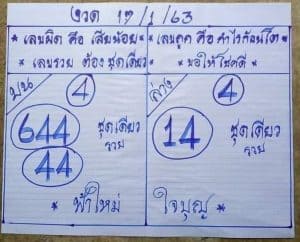 งวด 17/1/63
* เลขผิด คือ เสียน้อย *
* เลขรวย ต้อง ชุดเดียว
* เลขถูก คือ กำไรก้อนโต *
* ขอให้โชคดี *
บน
4
644
44
ชุดเดียว
รวย
* ฟ้าใหม่
ล่าง
4
14
ชุดเดียว
รวย
ใจบุญ *